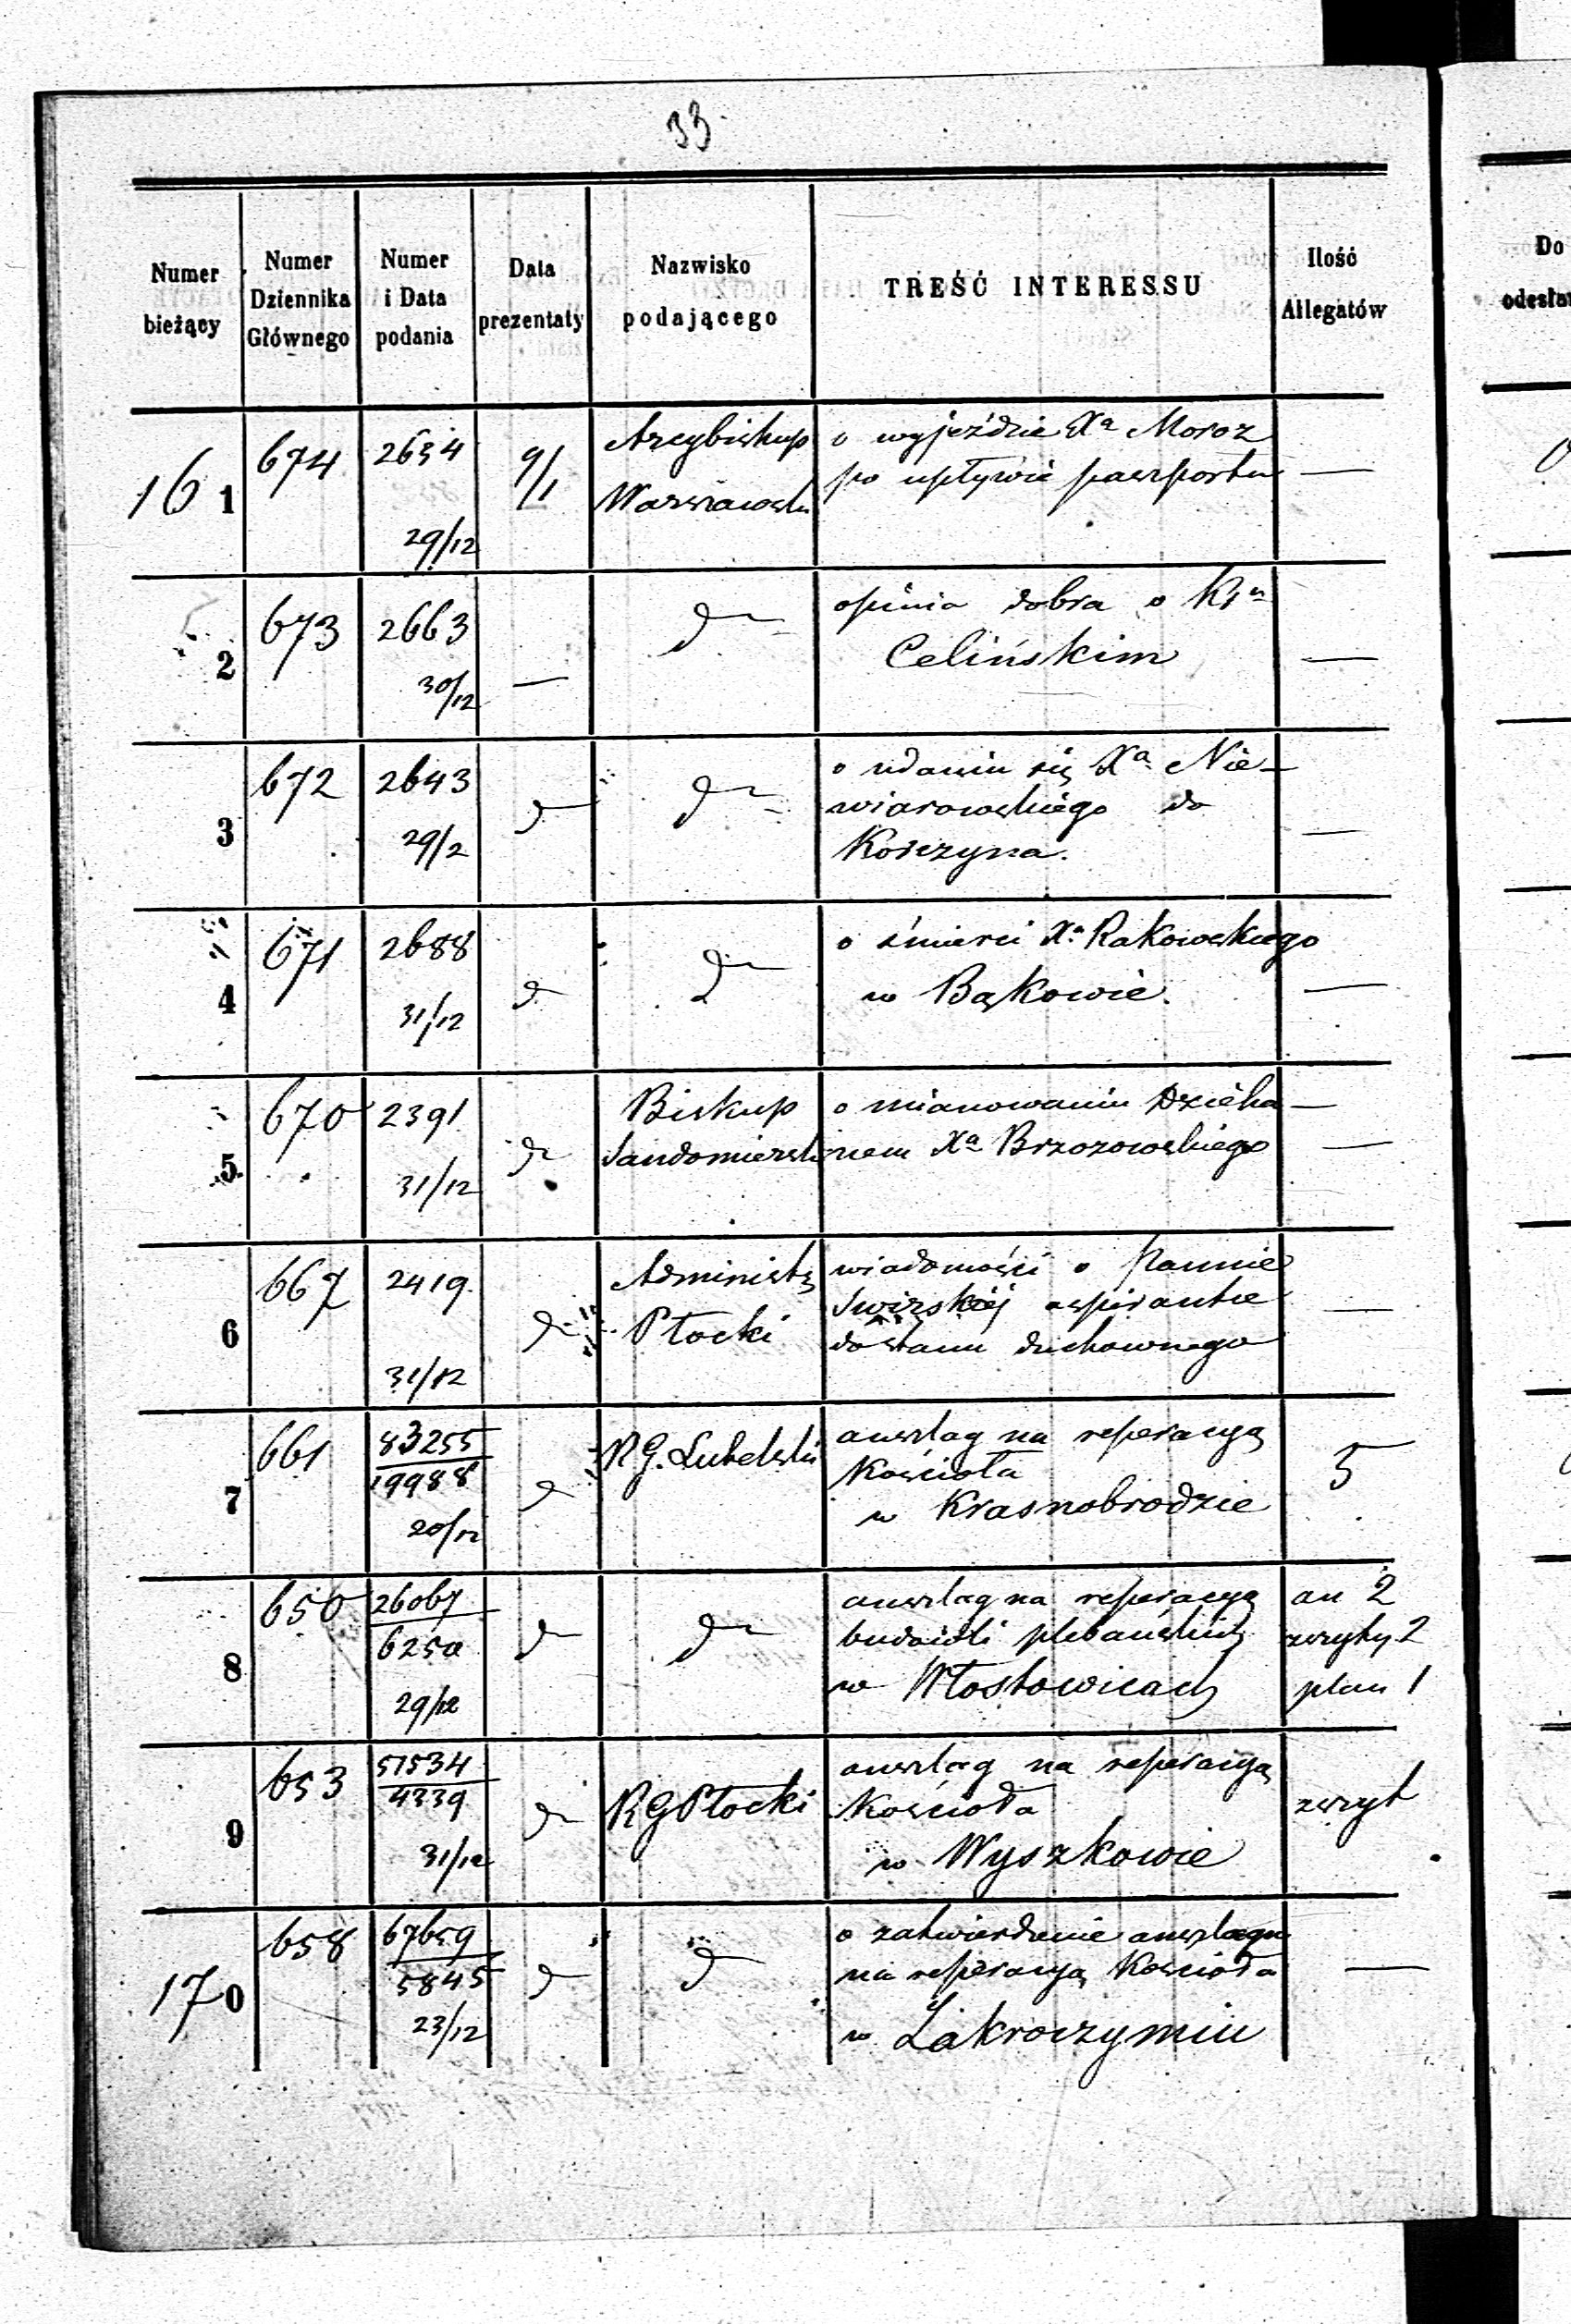 33
Numer bieżący
Numer Dziennika Głównego
Numer i Data podania
Data prezentaty
Nazwisko podającego
TREŚĆ INTERESSU
Ilość Allegatów
Do odesła
161 674 2634 29/12 9/1 Arcybiskup Warszawski
o wyjeździe Xa Moroz
po upływie paszportu —
2 673 2663 30/12 — do
opinia dobra o
Celińskim —
3 672 2643 29/2 do do
o udaniu się Xa Nie-
wiarowskiego do
Korczyna. —
4 671 2688 31/12 do do
o śmierci Xa Rakowskiego
w Bąkowie. —
5 670 2391 31/12 do Biskup Sandomierski
o mianowaniu Dzieka—
nem Xa Brzozowskiego —
6 667 2419 31/12 do Administr Płocki
wiadomości o Pannie
Swirskiej aspirantce
do stanu duchownego —
7 661 83255/19988 20/12 do RG. Lubelski
anszlag na reperacyą
Kościoła
w Krasnobrodzie 5
8 650 26067/6250 29/12 do do
anszlag na reperacyą
budowli plebańskich
w Włostowicach
an 2
zeszyty 2
plan 1
9 653 57534/4339 31/12 do RG Płocki
anszlag na reperacyą
Kościoła
w Wyszkowie
zeszyt
170 658 67659/5845 23/12 do do
o zatwierdzenie anszlagu
na reperacyą Kościoła
w Zakroczymiu —